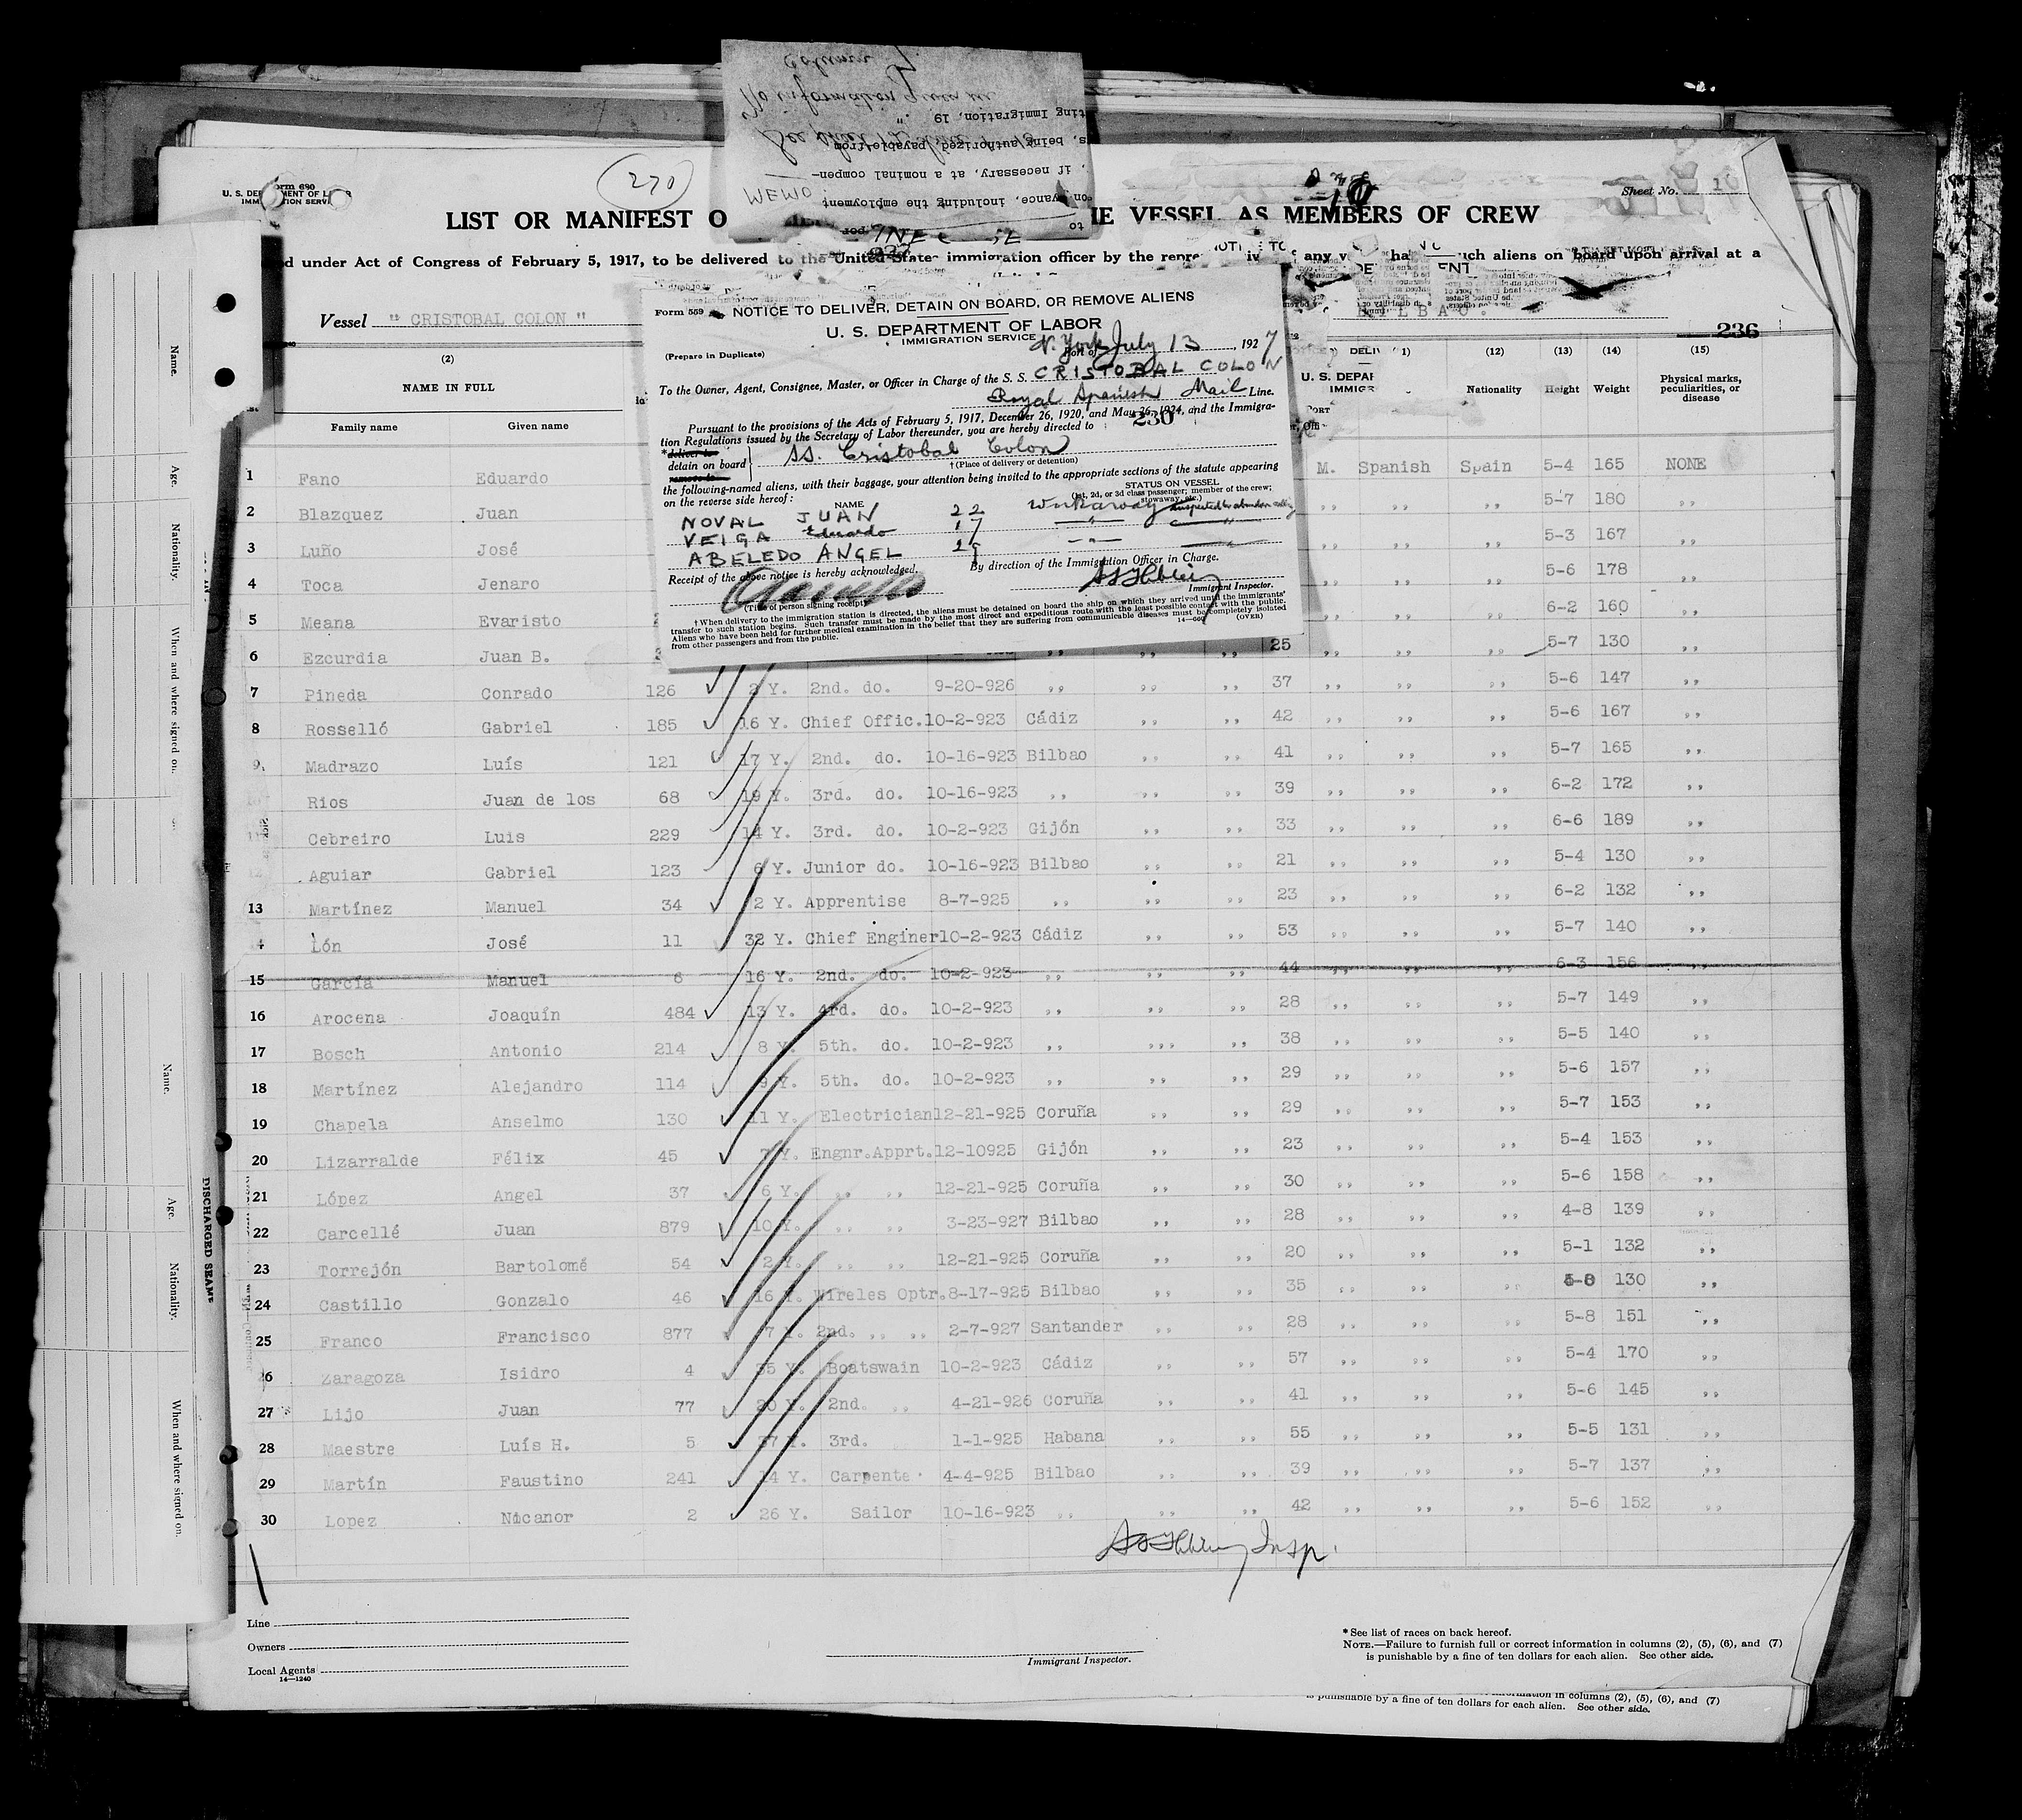 Form 680
U. S. DEPARTMENT OF LABOR
IMMIGRATION SERVICE
270
Sheet No. 1
LIST OR MANIFEST O
HE VESSEL AS MEMBERS OF CREW
d under Act of Congress of February 5, 1917, to be delivered to the United States immigration officer by the
any
such aliens on board upon arrival at a
Vessel " CRISTOBAL COLON "
BILBAO.
236
MEMO
No information given in
column 7.
ting Immigration, 19 ."
s, being authorized, payable from
, if necessary, at a nominal compen-
on
vance, including the employment
to
Form 559
NOTICE TO DELIVER, DETAIN ON BOARD, OR REMOVE ALIENS
U. S. DEPARTMENT OF LABOR
IMMIGRATION SERVICE
(Prepare in Duplicate)
Port of N. York July 13, 1927
To the Owner, Agent, Consignee, Master, or Officer in Charge of the S. S. CRISTOBAL COLON
Royal Spanish Mail Line.
Pursuant to the provisions of the Acts of February 5, 1917, December 26, 1920, and May 26, 1924, and the Immigra-
tion Regulations issued by the Secretary of Labor thereunder, you are hereby directed to
230
*deliver to
detain on board SS. Cristobal Colon
remove to
† (Place of delivery or detention)
the following-named aliens, with their baggage, your attention being invited to the appropriate sections of the statute appearing
on the reverse side hereof:
STATUS ON VESSEL
(1st, 2d, or 3d class passenger; member of the crew;
stowaway, etc.)
NAME
NOVAL JUAN 22 Workaway
VEIGA Eduardo 17 — " —
ABELEDO ANGEL 29 — " —
Receipt of the above notice is hereby acknowledged.
By direction of the Immigration Officer in Charge.
Immigrant Inspector.
(Title of person signing receipt)
† When delivery to the immigration station is directed, the aliens must be detained on board the ship on which they arrived until the immigrants'
transfer to such station begins. Such transfer must be made by the most direct and expeditious route with the least possible contact with the public.
Aliens who have been held for further medical examination in the belief that they are suffering from communicable diseases must be completely isolated
from other passengers and from the public.
14—660
(OVER)
(2) (12) (13) (14) (15)
NAME IN FULL Nationality Height Weight Physical marks, peculiarities, or disease
Family name Given name
1 Fano Eduardo M. Spanish Spain 5-4 165 NONE
2 Blazquez Juan ,, ,, ,, 5-7 180 ,,
3 Luño José ,, ,, ,, 5-3 167 ,,
4 Toca Jenaro ,, ,, ,, 5-6 178 ,,
5 Meana Evaristo ,, ,, ,, 6-2 160 ,,
6 Ezcurdia Juan B. 25 ,, ,, ,, 5-7 130 ,,
7 Pineda Conrado 126 2 Y. 2nd. do. 9-20-926 ,, ,, ,, 37 ,, ,, ,, 5-6 147 ,,
8 Rosselló Gabriel 185 16 Y. Chief Offic. 10-2-923 Cádiz ,, ,, 42 ,, ,, ,, 5-6 167 ,,
9 Madrazo Luís 121 17 Y. 2nd. do. 10-16-923 Bilbao ,, ,, 41 ,, ,, ,, 5-7 165 ,,
Rios Juan de los 68 19 Y. 3rd. do. 10-16-923 ,, ,, ,, 39 ,, ,, ,, 6-2 172 ,,
Cebreiro Luis 229 14 Y. 3rd. do. 10-2-923 Gijón ,, ,, 33 ,, ,, ,, 6-6 189 ,,
Aguiar Gabriel 123 6 Y. Junior do. 10-16-923 Bilbao ,, ,, 21 ,, ,, ,, 5-4 130 ,,
13 Martínez Manuel 34 2 Y. Apprentise 8-7-925 ,, ,, ,, 23 ,, ,, ,, 6-2 132 ,,
4 Lón José 11 32 Y. Chief Enginer 10-2-923 Cádiz ,, ,, 53 ,, ,, ,, 5-7 140 ,,
15 García Manuel 6 16 Y. 2nd. do. 10-2-923 ,, ,, ,, 44 ,, ,, ,, 6-3 156 ,,
16 Arocena Joaquín 484 13 Y. 4rd. do. 10-2-923 ,, ,, ,, 28 ,, ,, ,, 5-7 149 ,,
17 Bosch Antonio 214 8 Y. 5th. do. 10-2-923 ,, ,,, ,, 38 ,, ,, ,, 5-5 140 ,,
18 Martínez Alejandro 114 9 Y. 5th. do. 10-2-923 ,, ,, ,, 29 ,, ,, ,, 5-6 157 ,,
19 Chapela Anselmo 130 11 Y. Electrician 12-21-925 Coruña ,, ,, 29 ,, ,, ,, 5-7 153 ,,
20 Lizarralde Félix 45 7 Y. Engnr.Apprt. 12-10925 Gijón ,, ,, 23 ,, ,, ,, 5-4 153 ,,
21 López Angel 37 6 Y. ,, ,, 12-21-925 Coruña ,, ,, 30 ,, ,, ,, 5-6 158 ,,
22 Carcellé Juan 879 10 Y. ,, ,, 3-23-927 Bilbao ,, ,, 28 ,, ,, ,, 4-8 139 ,,
23 Torrejón Bartolomé 54 2 Y. ,, ,, 12-21-925 Coruña ,, ,, 20 ,, ,, ,, 5-1 132 ,,
24 Castillo Gonzalo 46 16 Y. Wireles Optr. 8-17-925 Bilbao ,, ,, 35 ,, ,, ,, 130 ,,
25 Franco Francisco 877 7 Y. 2nd. ,, ,, 2-7-927 Santander ,, ,, 28 ,, ,, ,, 5-8 151 ,,
26 Zaragoza Isidro 4 35 Y. Boatswain 10-2-923 Cádiz ,, ,, 57 ,, ,, ,, 5-4 170 ,,
27 Lijo Juan 77 20 Y. 2nd. ,, 4-21-926 Coruña ,, ,, 41 ,, ,, ,, 5-6 145 ,,
28 Maestre Luís H. 5 37 Y. 3rd. 1-1-925 Habana ,, ,, 55 ,, ,, ,, 5-5 131 ,,
29 Martín Faustino 241 14 Y. Carpente 4-4-925 Bilbao ,, ,, 39 ,, ,, ,, 5-7 137 ,,
30 Lopez Nicanor 2 26 Y. Sailor 10-16-923 ,, ,, ,, 42 ,, ,, ,, 5-6 152 ,,
Insp.
Line
Owners
Local Agents
14—1240
Immigrant Inspector.
* See list of races on back hereof.
NOTE.—Failure to furnish full or correct information in columns (2), (5), (6), and (7)
is punishable by a fine of ten dollars for each alien. See other side.
information in columns (2), (5), (6), and (7)
is punishable by a fine of ten dollars for each alien. See other side.
Name.
Age.
Nationality.
When and where signed on.
Name.
Age.
Nationality.
When and where signed on.
DISCHARGED SEAME